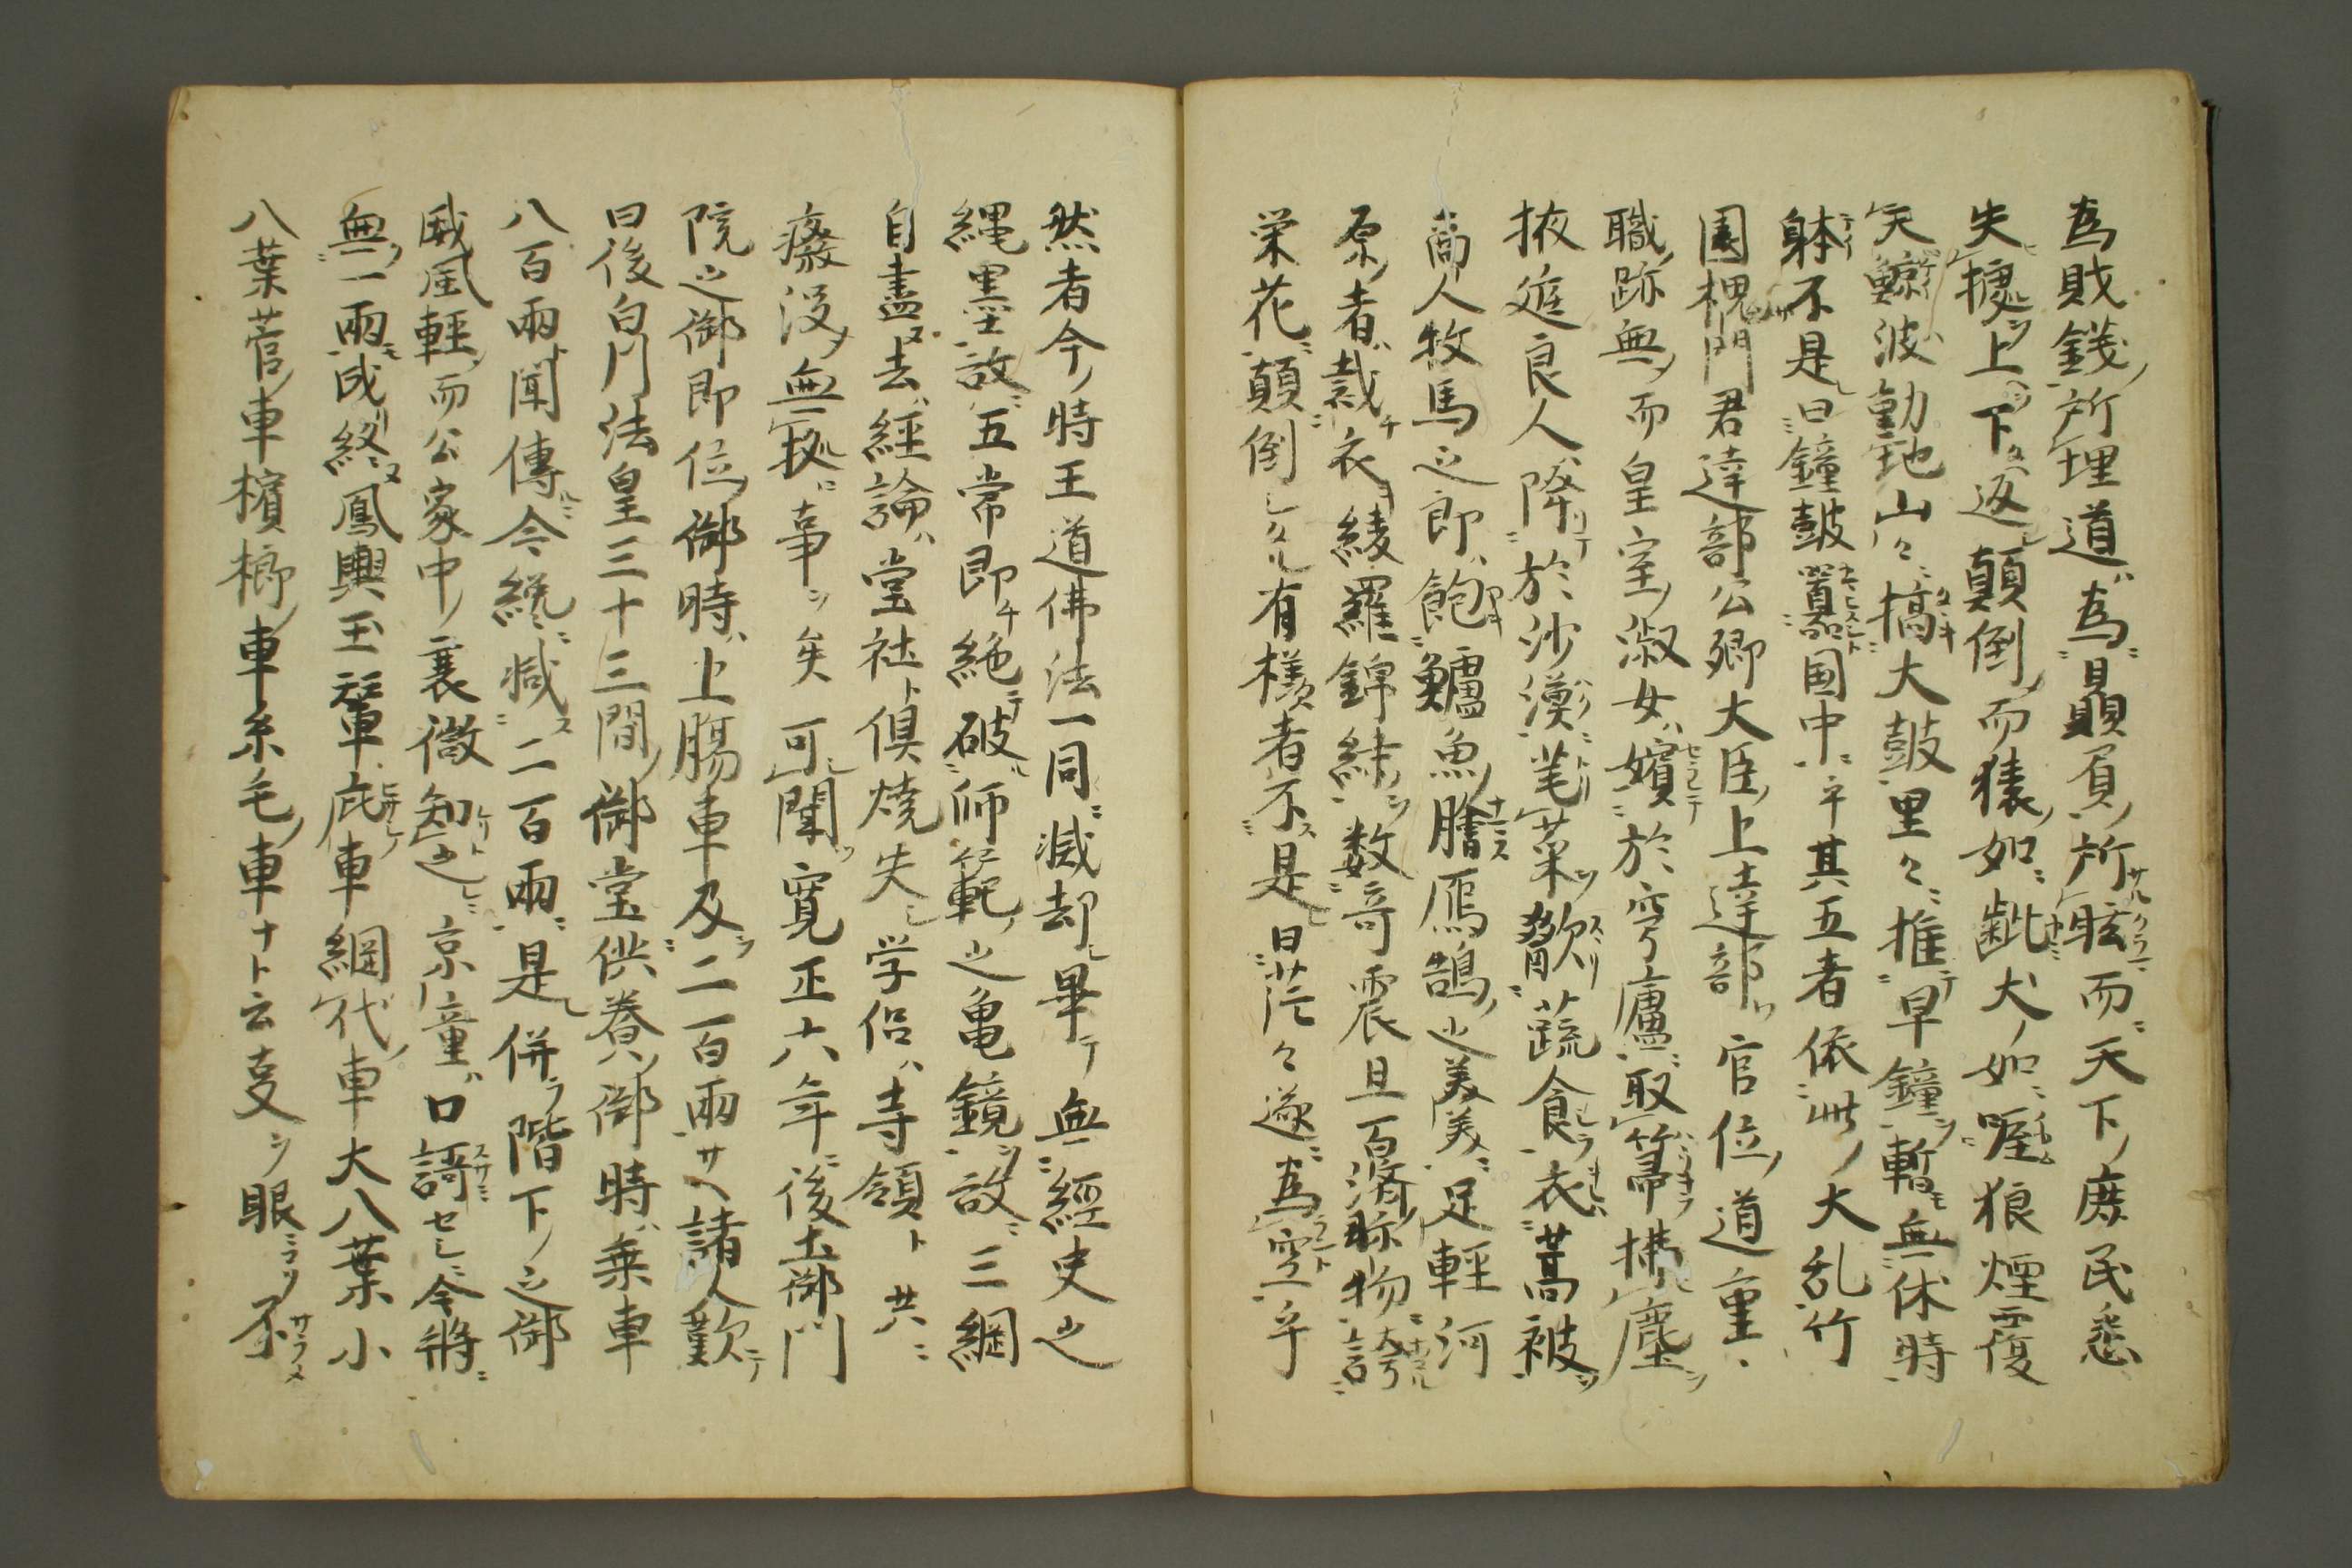 為賊錢所埋道為贔屓所眩而天下庶民悉
失據上下返顛倒而猿如齜犬如啀狼煙覆
天鯨波動地山々搞大鼓里々推早鐘暫無休時
躰不是曰鐘鼓囂国中平其五者依此大乱竹
園槐門君達部公卿大臣上達部官位道重
職跡無而皇室淑女嬪於穹廬取箒拂塵
掖庭良人降於沙漠芼菜歠蔬食衣蒿被
商人牧馬之郎飽鱸魚膾鴈鵠之美美足軽河
原者裁衣綾羅錦綉数奇震旦百濟眎物誇
栄花顛倒シタル有樣者不是曰茫々遂為空乎
然者今時王道佛法一同滅却畢無經史之
縄墨故五常即絶破師範之亀鏡故三綱
自盡去經論堂社倶焼失学侶寺領共
癈没無拠事矣可聞寛正六年後土御門
院之御即位御時上腸車及二百両諸人歎
曰後白川法皇三十三間御堂供養御時乗車
八百両聞傳今纔減二百両是併階下之御
威風軽而公家中襄微知之京童口誇セシ今將
無一両成終鳳輿玉輦庇車網代車大八葉小
八葉菅車檳榔車糸毛車ナト云支ヲ眼不